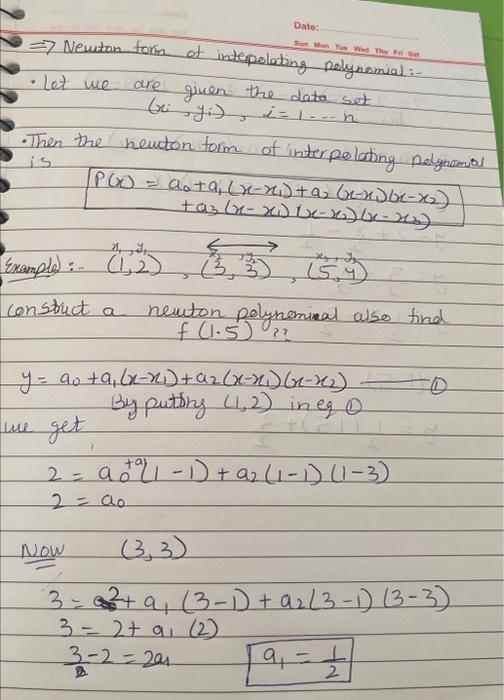 Date:
Sun Mon Tue Wed Thu Fri Sat
=> Newton form of interpolating polynomial:-
• let we are given the data set
(xi, yi), i=1 --- n
• Then the newton form of interpolating polynomial
is
P(x) = a0+a1(x-x1)+a2(x-x1)(x-x2)
+a3(x-x1)(x-x2)(x-x3)
x1, y1 x2, y2 x3, y3
Example:- (1,2), (3,3), (5,4)
construct a newton polynomial also find
f(1.5) ??
y = a0+a1(x-x1)+a2(x-x1)(x-x2) — ①
By putting (1,2) in eq ①
we get
2 = a0+a1(1-1)+a2(1-1)(1-3)
2 = a0
Now (3,3)
3 = 2+a1(3-1)+a2(3-1)(3-3)
3 = 2+a1(2)
3-2 = 2a1 a1 = 1/2